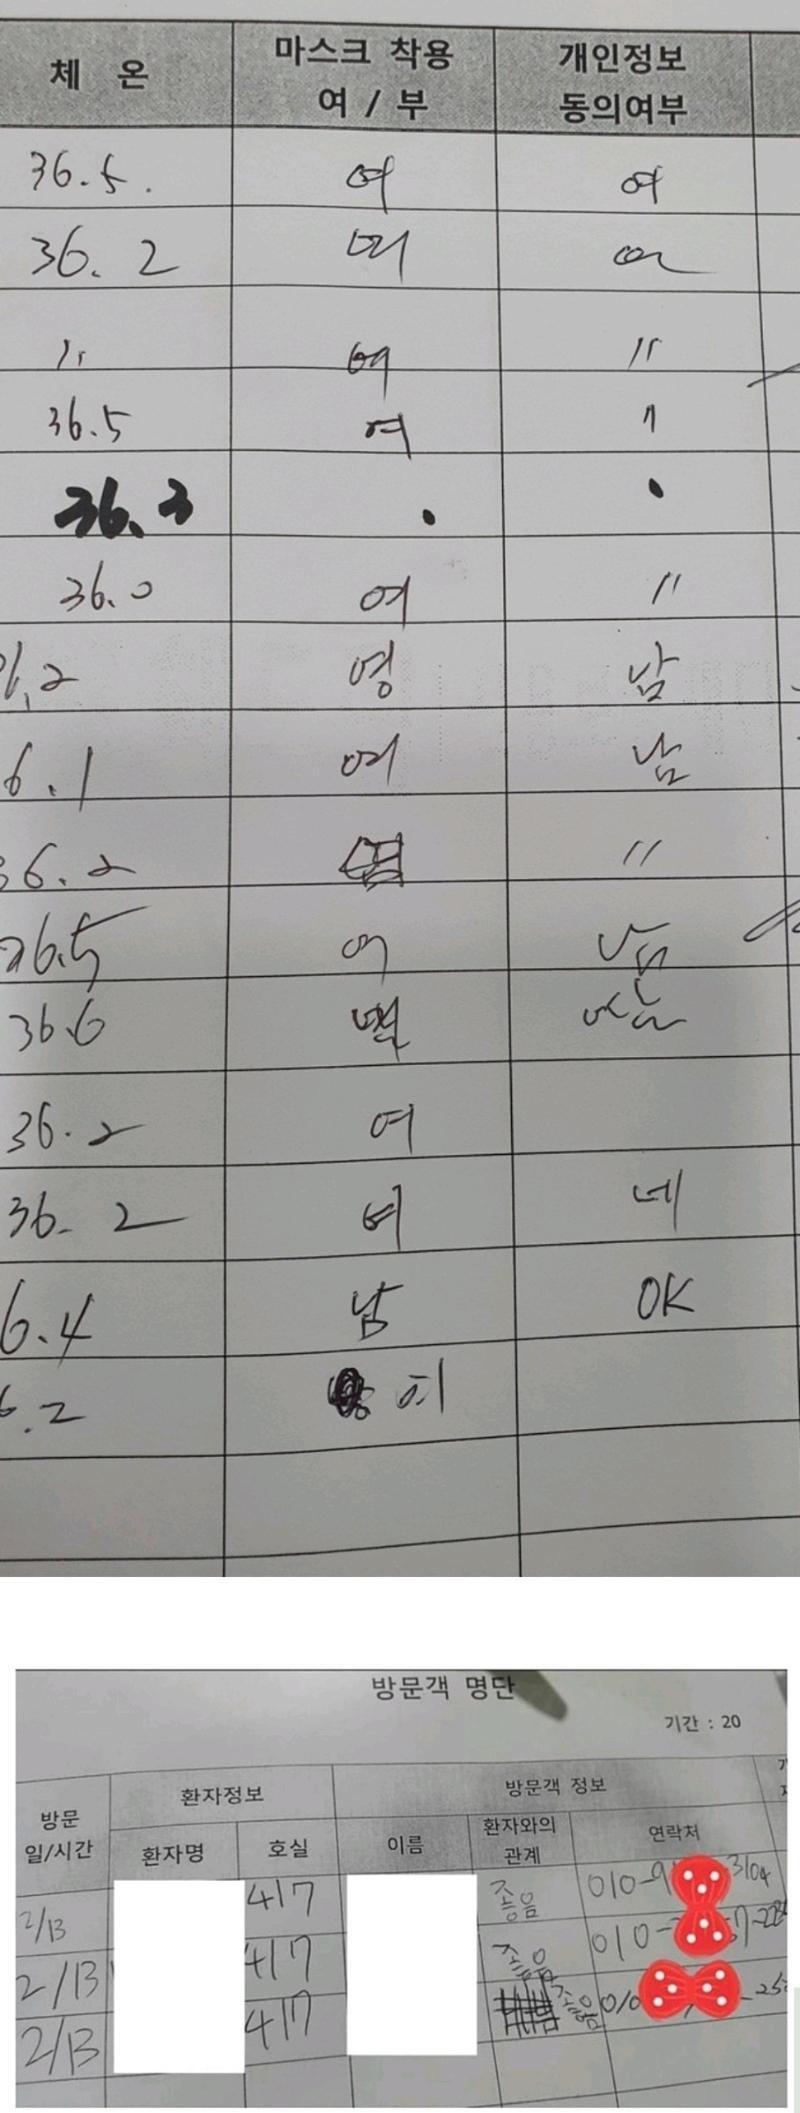 체 온 마스크 착용 여 / 부 개인정보 동의여부
36.5. 여 여
36.2 여 여
〃 여 〃
36.5 여 〃
36.3 . .
36.0 여 〃
여 〃
6.2 영 남
6.1 여 남
36.2 〃
36.5 여 남
36.6 남
36.2 여
36.2 여 네
6.4 남 OK
6.2 여
방문객 명단
기간 : 20
방문 일/시간 환자정보 방문객 정보
환자명 호실 이름 환자와의 관계 연락처
2/13 417 좋음 010-9 3104
2/13 417 좋음 010-
2/13 417 좋음 010